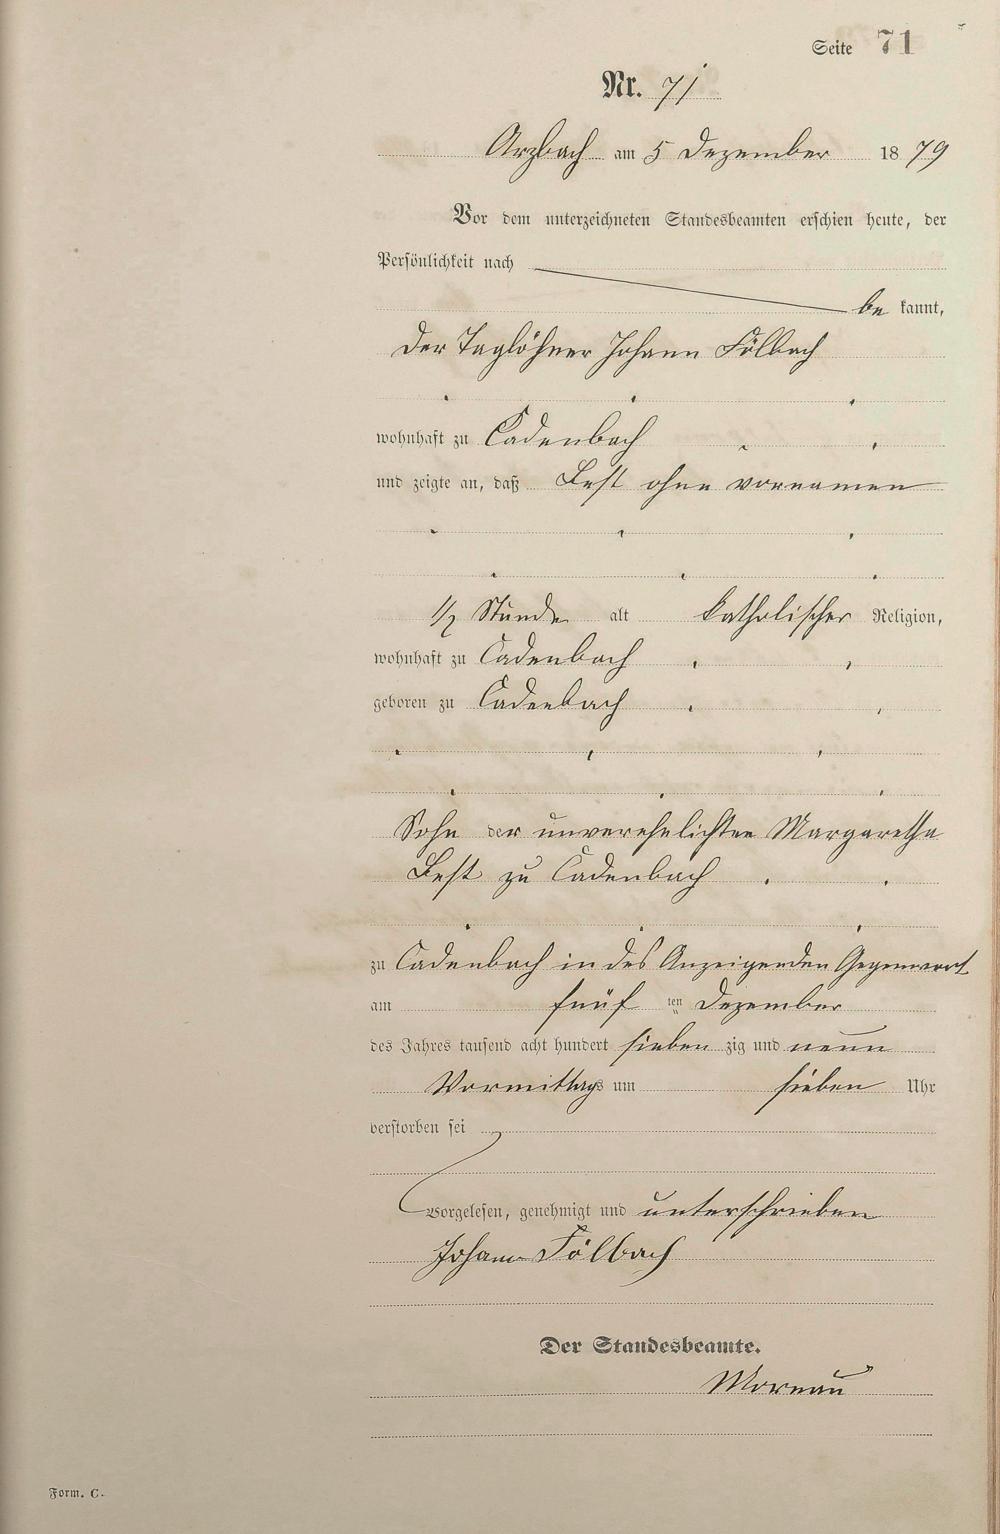 Seite 71
Nr. 71
Arzbach am 5 Dezember 1879
Vor dem unterzeichneten Standesbeamten erschien heute, der
Persönlichkeit nach
be kannt,
der Taglöhner Johann Fölbach
wohnhaft zu Cadenbach
und zeigte an, daß Best ohne vornamen
1/2 Stunde alt katholischer Religion,
wohnhaft zu Cadenbach
geboren zu Cadenbach
Sohn der unverehelichten Margaretha
Best zu Cadenbach
zu Cadenbach in des Anzeigenden Gegenwart
am fünf ten Dezember
des Jahres tausend acht hundert sieben zig und neun
Vormittags um sieben Uhr
verstorben sei
Vorgelesen, genehmigt und unterschrieben
Johann Fölbach
Der Standesbeamte.
Moreau
Form. C.